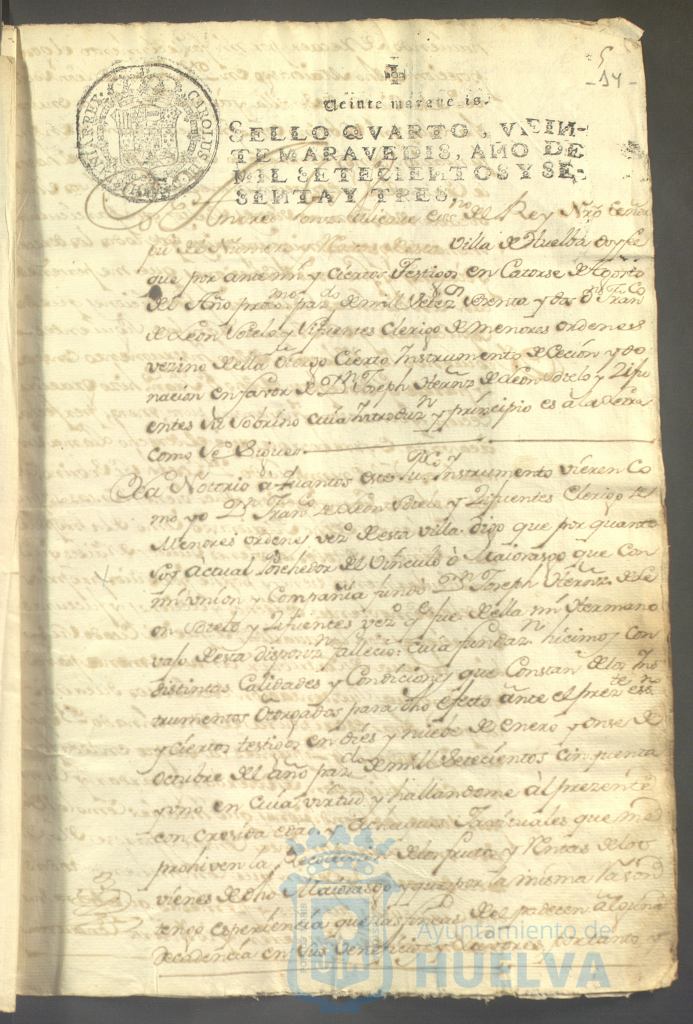 5
-14-
CAROLUS III D G HISPANIAR REX
Veinte maravedis.
SELLO QVARTO, VEIN-
TE MARAVEDIS, AÑO DE
MIL SETECIENTOS Y SE-
SENTA Y TRES,
Andres Gonz Vicente essno del Rey Nro Señor
pu del Numero y desta Villa de Huelba doy fe
que por ante mi y Ciertos Testigos en Catorse de Agosto
del Año proxmo pasdo de mill Setez Senta y dos Dn Franco
de Leon Sotelo y Zifuentes Clerigo de menores ordenes
vezino de ella Otorgó Cierto Instrumento de Cecion y do-
nacion en favor de Dn Joseph Hernz de Leon Sotelo y Zifu-
entes su Sobrino cuia introduzn y principio es a la Letra
como se Sigue
Sea Notorio a quantos este puco Instrumento vieren Co-
mo yo Dn Franco de Leon Sotelo y Zifuentes Clerigo de
Menores ordenes vezo desta villa digo que por quanto
Soy actual Posehedor del Vinculo ò Maiorasgo que Con
mi vnion y Compañia fundó Dn Joseph Hernz de Le-
on Sotelo y Zifuentes vezo q fue della mi Hermano
vajo desta disposizn fallecio: Cuia fundazn hicimos con
distintas Calidades y Condiciones que Constan de los Ins-
trumentos Otorgados para dho efecto ante el prezte essno
y Ciertos testigos en dies y nuebe de Enero y onse de
Octubre del año pasdo de mill Setecientos cinquenta
y uno en Cuia virtud y hallandome àl prezente
con Cresida edad y Achaques havituales que me
prohiven la Recaudacion de los frutos y Rentas de los
vienes de dho Maiorasgo y que por la misma Razon
tengo esperiencia que las fincas del padecen alguna
decadencia en sus Veneficios y Lavores, por tanto
Ayuntamiento de
HUELVA